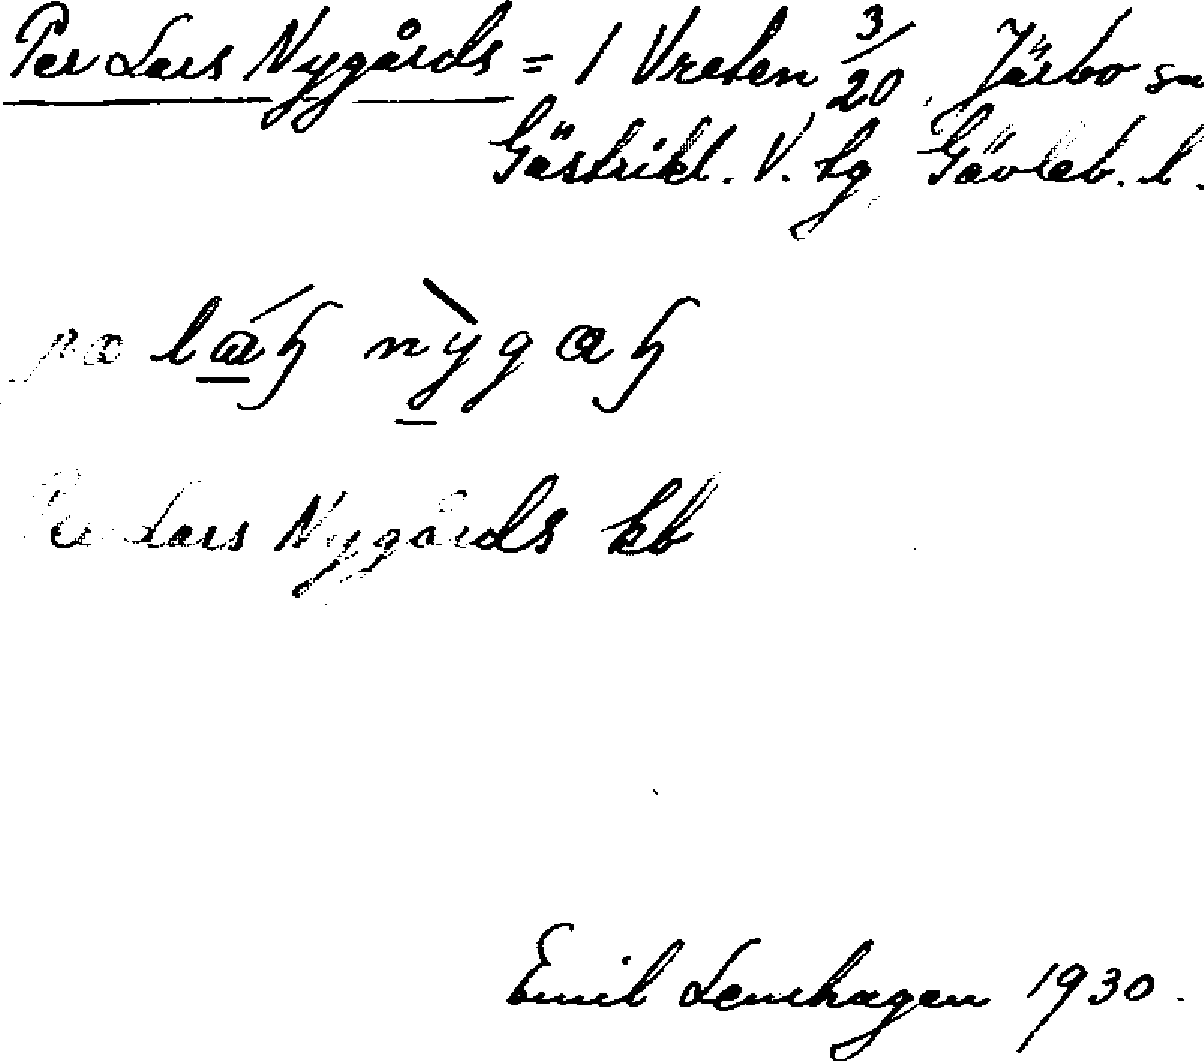 Per Lars Nygårds = 1 Vreten 3/20. Järbo sn
Gästrikl. V. tg Gävleb. l.
Per Lars Nygårds kb
Emil Lenhagen 1930.